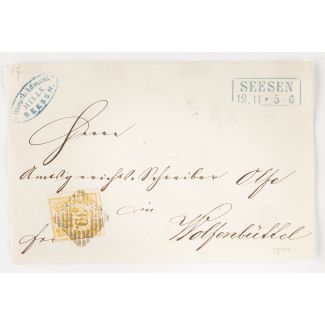 HILLE
SEESEN.
SEESEN
12.11 * 5-6
Herrn
Amtsgerichts-Schreiber Olfe
in
frei Wolfenbüttel